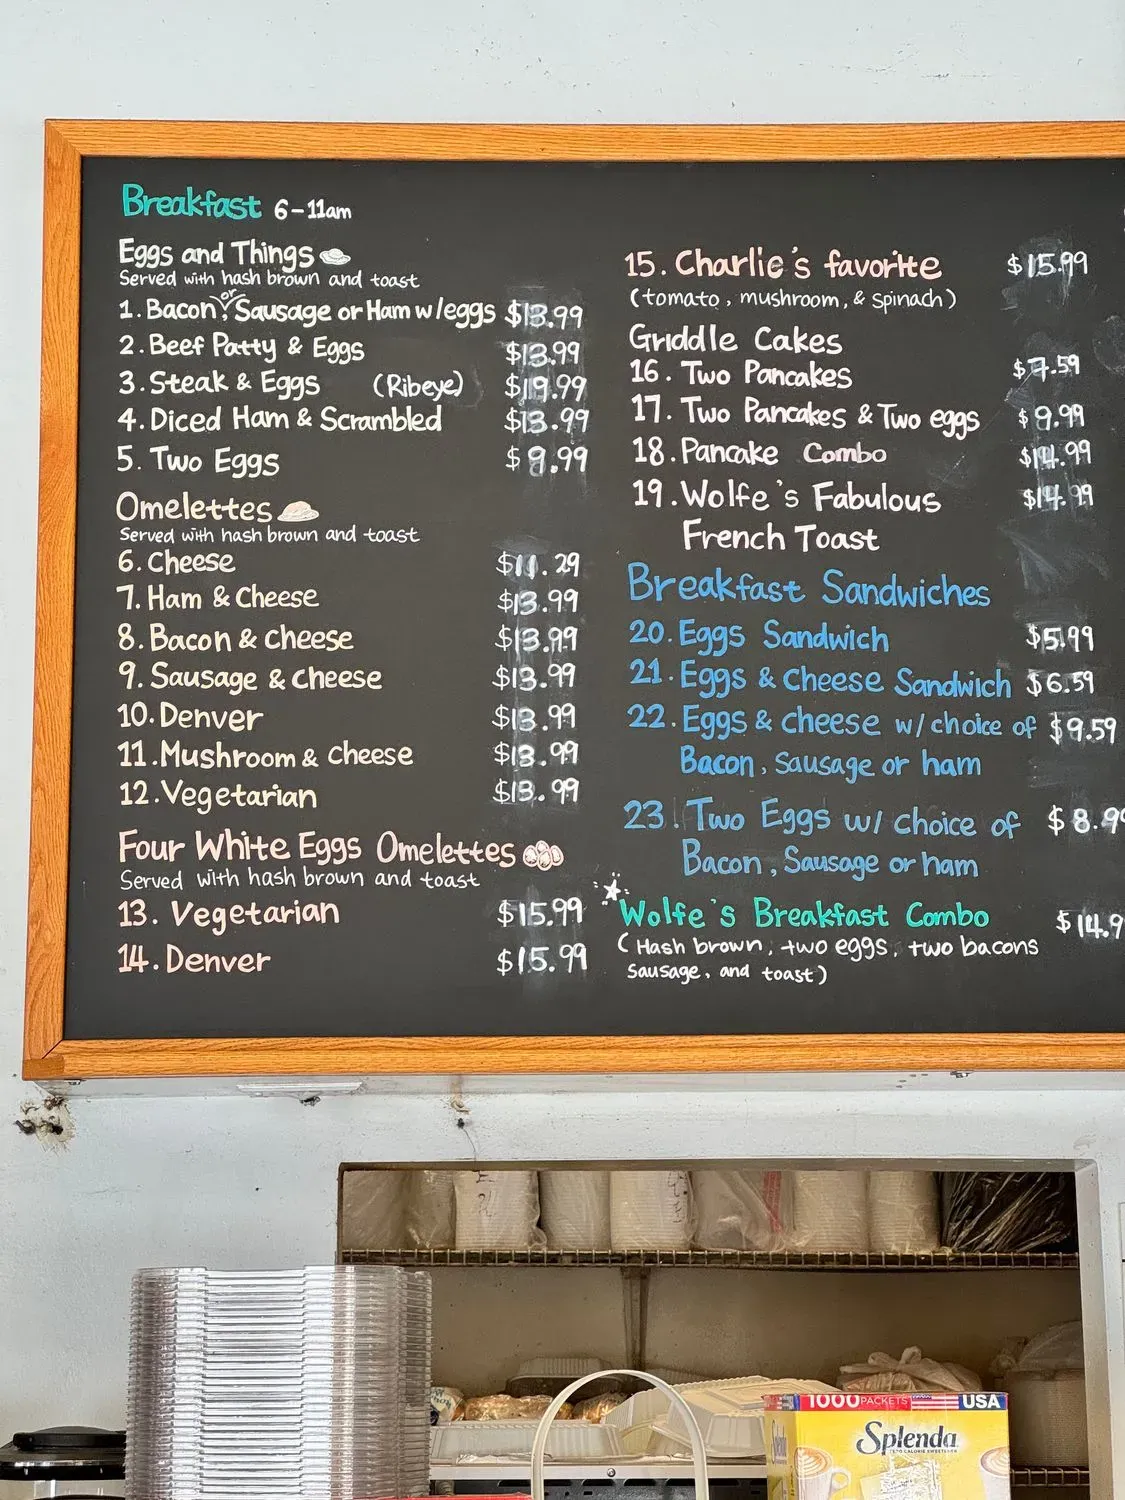 Breakfast 6-11am
Eggs and Things
Served with hash brown and toast
1. Bacon, or Sausage or Ham w/eggs $13.99
2. Beef Patty & Eggs $13.99
3. Steak & Eggs (Ribeye) $19.99
4. Diced Ham & Scrambled $13.99
5. Two Eggs $9.99
Omelettes
Served with hash brown and toast
6. Cheese $11.29
7. Ham & Cheese $13.99
8. Bacon & cheese $13.99
9. Sausage & cheese $13.99
10. Denver $13.99
11. Mushroom & Cheese $13.99
12. Vegetarian $13.99
Four White Eggs Omelettes
Served with hash brown and toast
13. Vegetarian $15.99
14. Denver $15.99
15. Charlie's favorite $15.99
(tomato, mushroom, & spinach)
Griddle Cakes
16. Two Pancakes $7.59
17. Two Pancakes & Two eggs $9.99
18. Pancake Combo $14.99
19. Wolfe's Fabulous $14.99
French Toast
Breakfast Sandwiches
20. Eggs Sandwich $5.99
21. Eggs & cheese Sandwich $6.59
22. Eggs & cheese w/ choice of $9.59
Bacon, Sausage or ham
23. Two Eggs w/ choice of $8.99
Bacon, Sausage or ham
Wolfe's Breakfast Combo $14.9
(Hash brown, two eggs, two bacons
sausage, and toast)
1000 PACKETS USA
Splenda
ZERO CALORIE SWEETENER